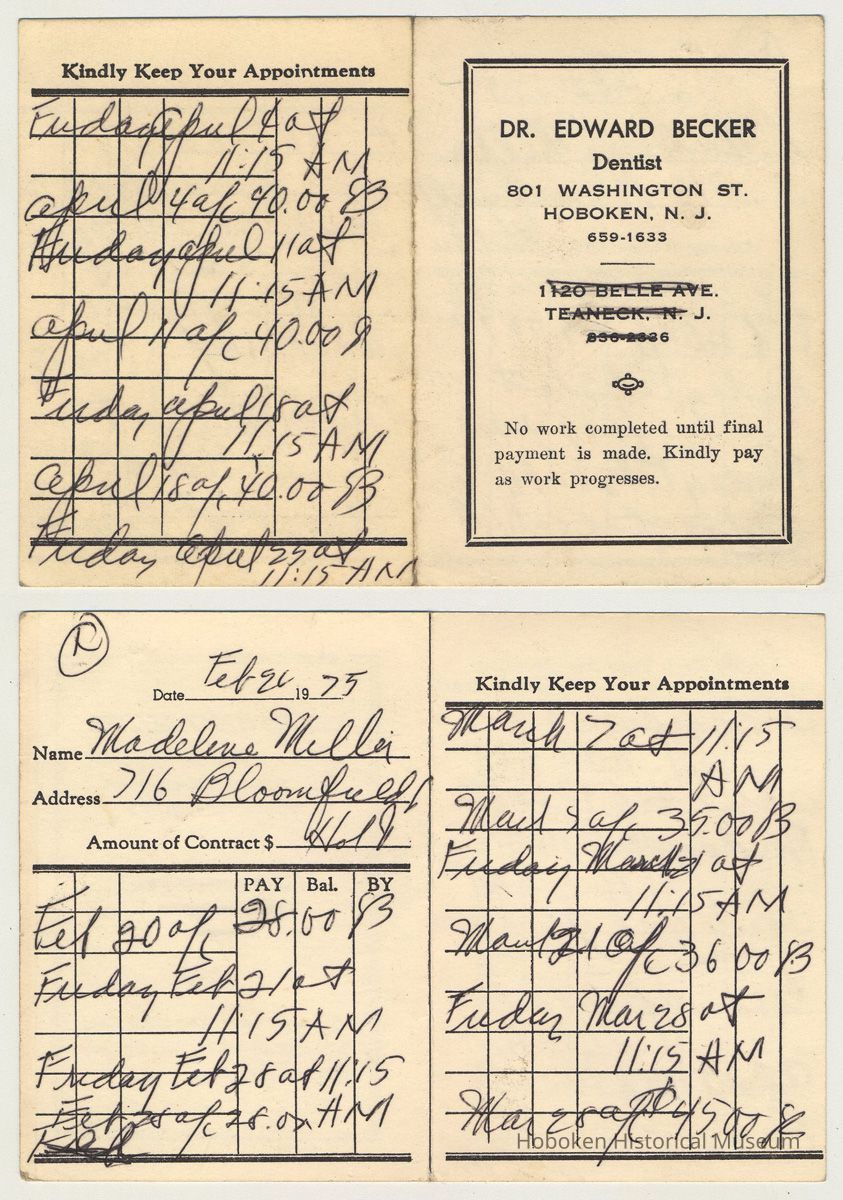 Kindly Keep Your Appointments
Friday April 4 at
11:15 AM
April 4 a/c 40.00 B
Friday April 11 at
11:15 AM
April 11 a/c 40.00 B
Friday April 18 at
11:15 AM
April 18 a/c 40.00 B
Friday April 25 at
11:15 AM
DR. EDWARD BECKER
Dentist
801 WASHINGTON ST.
HOBOKEN, N. J.
659-1633
1120 BELLE AVE.
TEANECK, N. J.
836-2336
No work completed until final
payment is made. Kindly pay
as work progresses.
R
Date Feb 20 1975
Name Madelene Miller
Address 716 Bloomfield
Amount of Contract $
PAY Bal. BY
Feb 20 a/c 28.00 B
Friday Feb 21 at
11:15 AM
Friday Feb 28 at 11:15
AM
Feb 28 a/c 28.00
Kindly Keep Your Appointments
March 7 at 11:15
AM
Mar 7 a/c 35.00 B
Friday March 21 at
11:15 AM
March 21 a/c 36 00 B
Friday Mar 28 at
11:15 AM
Mar 28 a/c 45 00 B
Hoboken Historical Museum